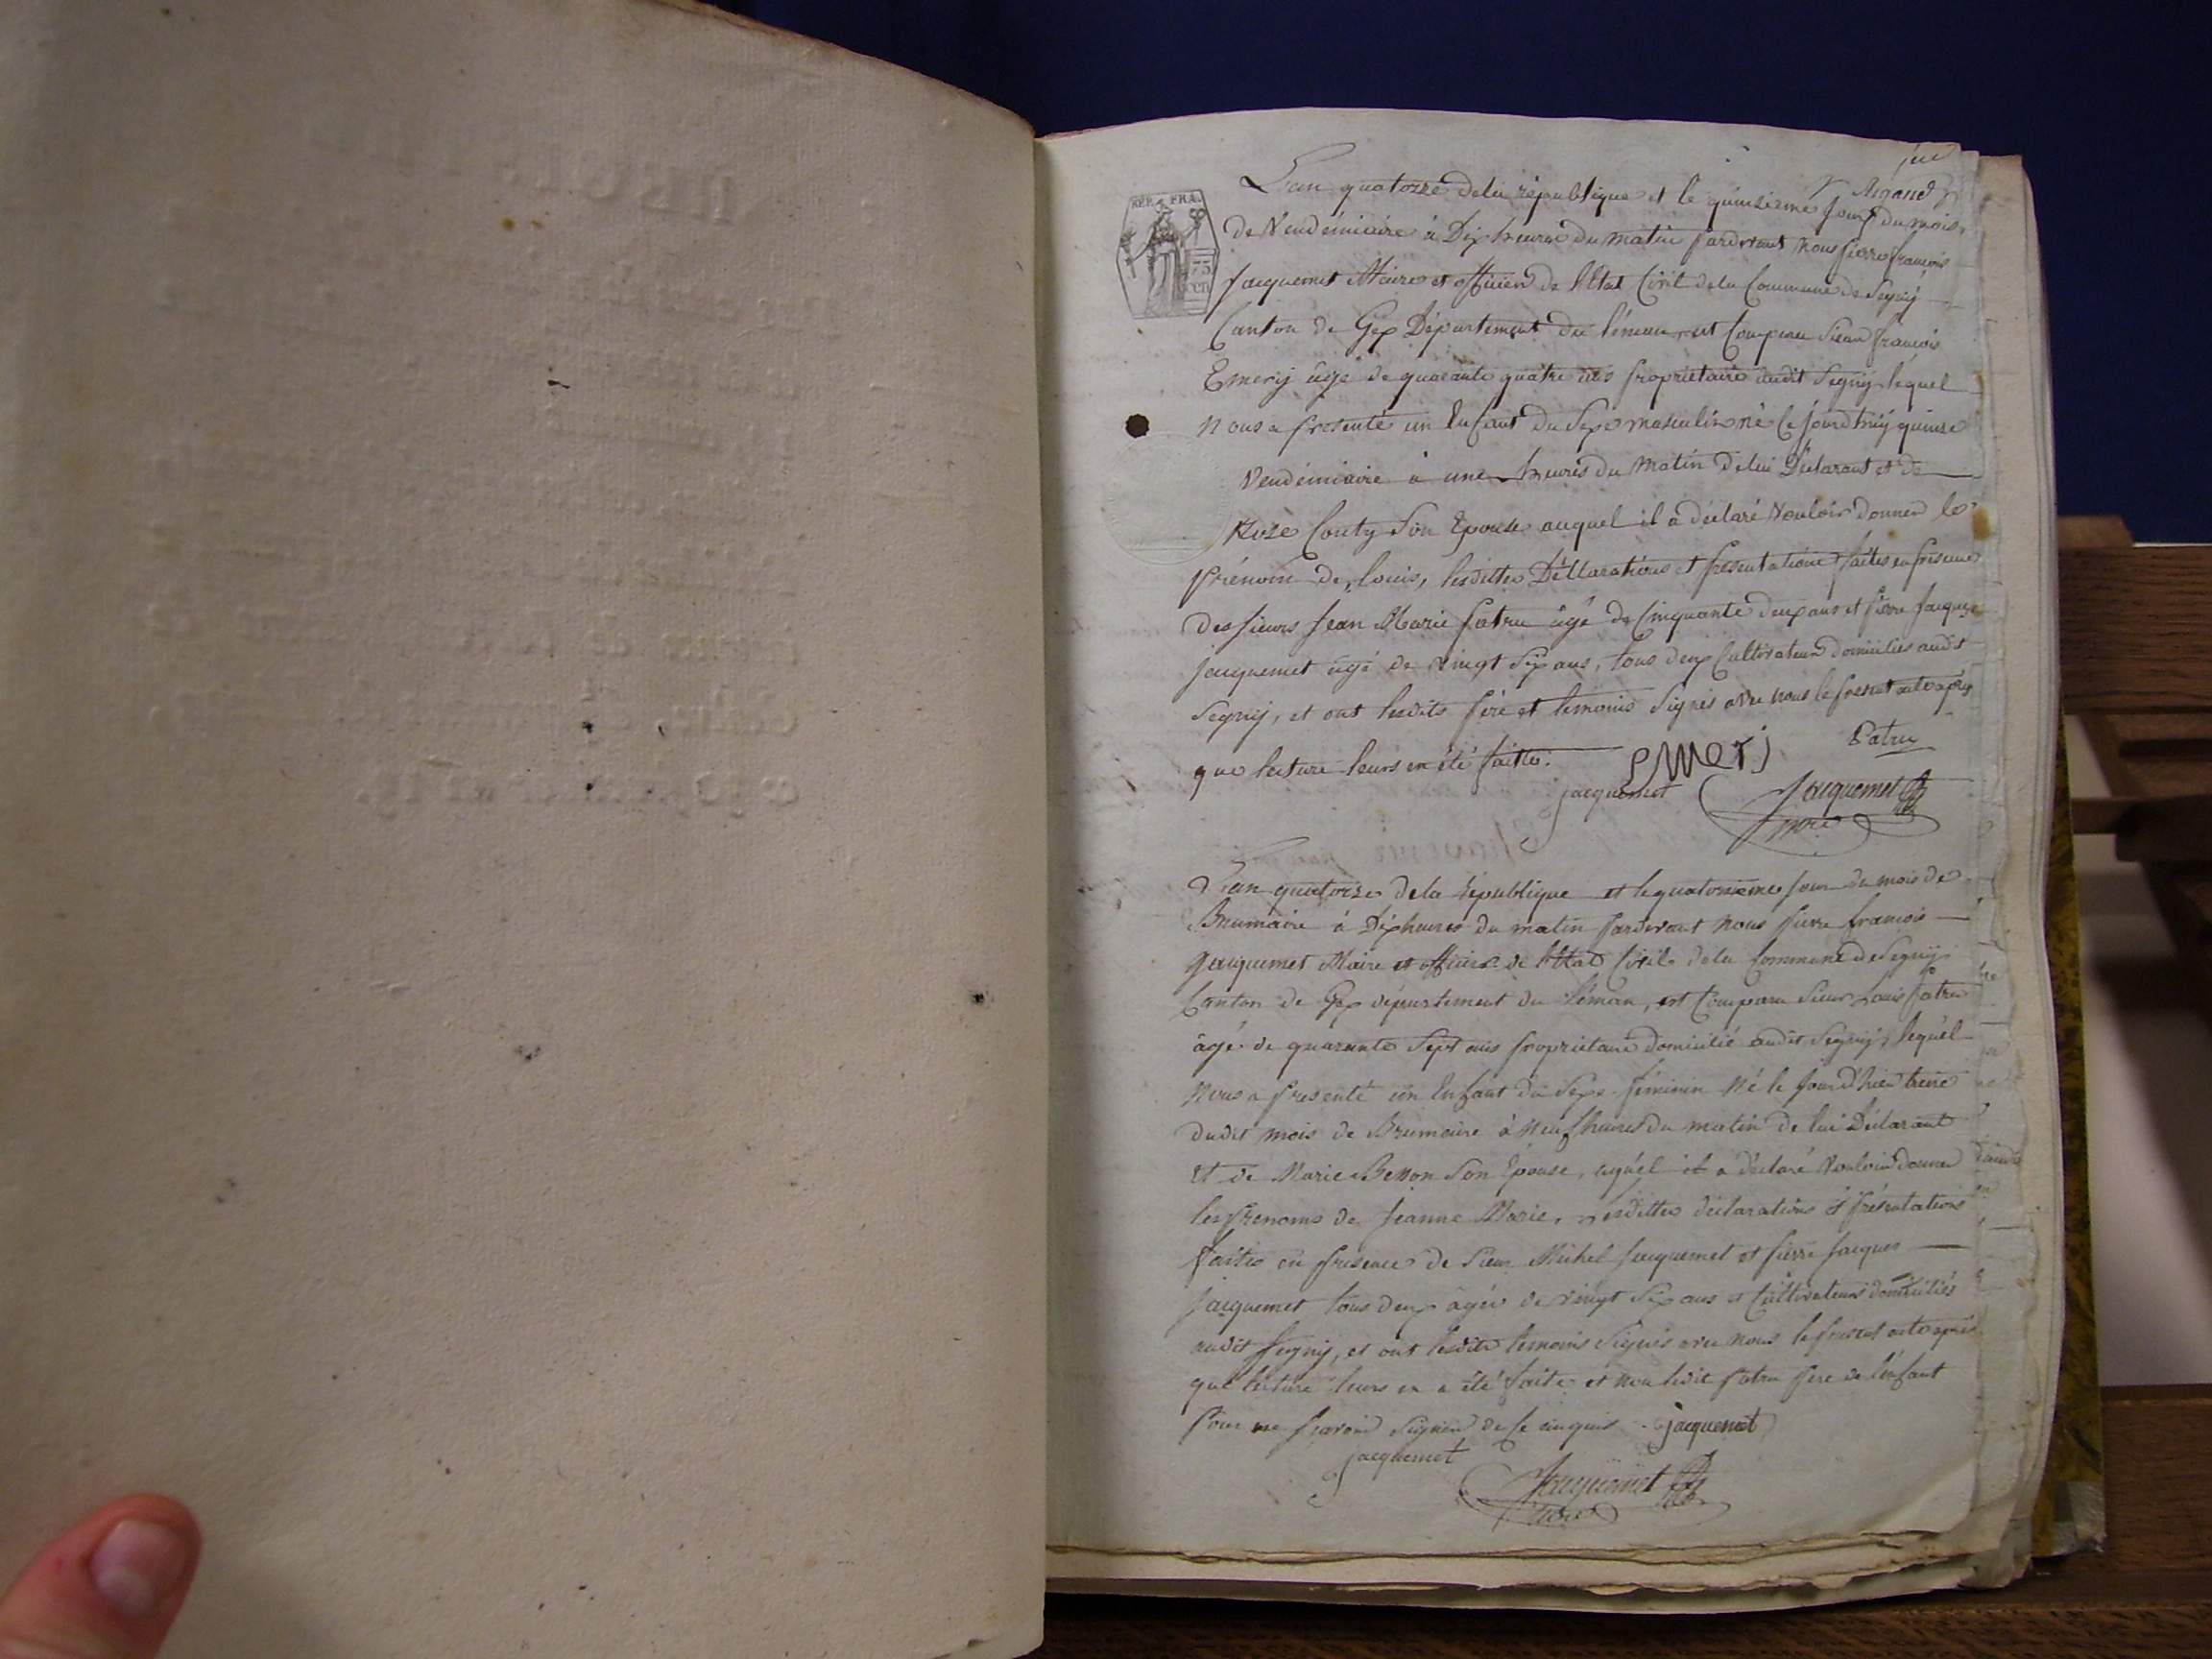 REP. FRA.
75
CEN
L'an quatorze dela république et le quinzieme Jour du mois
de Vendémiaire à Dix heures du matin pardevant nous pierre françois
Jacquemet Maire et officier de l'Etat Civil dela Commune de Segny
Canton de Gex Département du léman, est Comparu Sieur françois
Emery âgé de quarante quatre ans propriétaire audit Segny lequel
nous a présenté un Enfant du Sexe masculin né le jourd'huy quinze
Vendémiaire à une heures du Matin de lui Déclarant et de
Roze Conty Son Epouse auquel il a déclaré Vouloir donner le
Prénom de louis, lesdittes Déclarations et présentations faites en présence
des sieurs Jean Marie patru âgé de Cinquante deux ans et pierre Jacques
Jacquemet âgé de vingt Six ans, tous deux Cultivateurs domiciliés audit
Segny, et ont lesdits père et temoins Signés avec nous le présent acte après
que lecture leurs en été faitte.
Emery
Patru
jacquemet
Jacquemet
maire
L'an quatorze dela république et le quatorzieme jour du mois de
Brumaire à Dix heures du matin pardevant nous pierre françois
Jacquemet Maire et officier de l'Etat Civil dela Commune de Segny
Canton de Gex département du léman, est Comparu Sieur Louis patru
âgé de quarante Sept ans propriétaire domicilié audit Segny, lequel
nous a présenté un Enfant du Sexe féminin né le jour d'hier treize
dudit mois de Brumaire à neuf heures du matin de lui Déclarant
et de Marie Benon Son Epouse, auquel il a déclaré Vouloir donner
les prenoms de Jeanne Marie, lesdittes déclarations et présentations
faites en présence de Sieur Michel Jacquemet et pierre Jacques
Jacquemet tous deux âgés de vingt Six ans et Cultivateurs domiciliés
audit Segny, et ont lesdits temoins Signés avec nous le présent acte après
que lecture leurs en a été faite et non ledit patru père de l'enfant
pour ne savoir Signer de ce enquis jacquemet
jacquemet
Jacquemet
maire